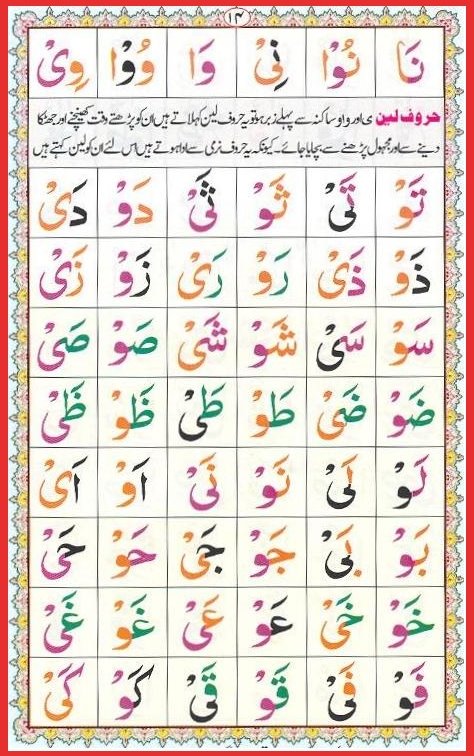 ۱۴
نَا نُوْا نِىْ وَا وُوْا وِىْ
حروف لین ی اور واو ساکنہ سے پہلے زبر ہو تو یہ حروف لین کہلاتے ہیں ان کو پڑھتے وقت کھینچنے اور جھٹکا
دینے سے اور مجہول پڑھنے سے بچایا جائے۔ کیونکہ یہ حروف نرمی سے ادا ہوتے ہیں اس لئے ان کو لین کہتے ہیں
تَوْ تَىْ ثَوْ ثَىْ دَوْ دَىْ
ذَوْ ذَىْ رَوْ رَىْ زَوْ زَىْ
سَوْ سَىْ شَوْ شَىْ صَوْ صَىْ
ضَوْ ضَىْ طَوْ طَىْ ظَوْ ظَىْ
لَوْ لَىْ نَوْ نَىْ اَوْ اَىْ
بَوْ بَىْ جَوْ جَىْ حَوْ حَىْ
خَوْ خَىْ عَوْ عَىْ غَوْ غَىْ
فَوْ فَىْ قَوْ قَىْ كَوْ كَىْ